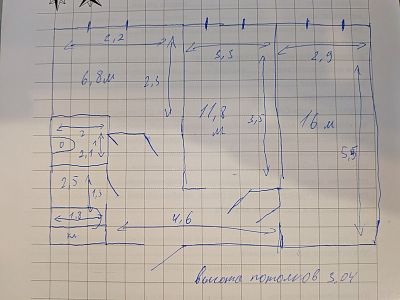 2,2
3,3
2,9
6,8м
2,3
11,8
м
3,5
16 м
5,5
2
1
2,1
2,5
1,3
1,8
4,6
высота потолков 3,04